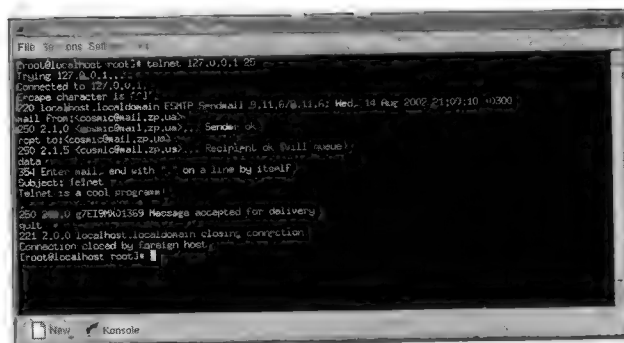 File Sessions Settings
[root@localhost root]# telnet 127.0.0.1 25
Trying 127.0.0.1...
Connected to 127.0.0.1.
Escape character is
220 localhost.localdomain ESMTP Sendmail 8.11.6/8.11.6; Wed, 14 Aug 2002 21:09:10 +0300
mail from:<cosmic@mail.zp.ua>
250 2.1.0 <cosmic@mail.zp.ua>... Sender ok
rcpt to:<cosmic@mail.zp.ua>
250 2.1.5 <cosmic@mail.zp.ua>... Recipient ok (will queue)
data
354 Enter mail, end with "." on a line by itself
Subject: Telnet
Telnet is a cool programm!
.
250 2.0.0 g7EI9MX01369 Message accepted for delivery
quit
221 2.0.0 localhost.localdomain closing connection
Connection closed by foreign host.
[root@localhost root]#
New Konsole